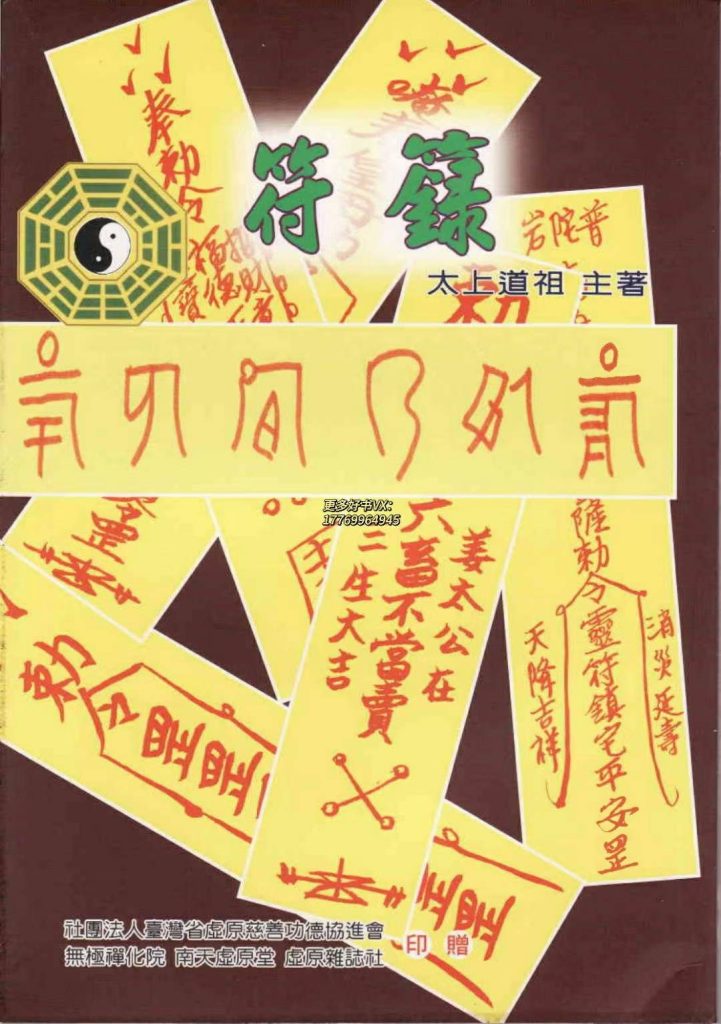 符籙
太上道祖 主著
奉勅令
招財
福德
寶
普陀岩
勅
更多好书VX:
17769964945
姜太公在
六畜不當賣
二生大吉
薩勅令靈符鎮宅平安罡
消災延壽
天降吉祥
令罡
勅令罡罡罡
罡罡
社團法人臺灣省虛原慈善功德協進會
無極禪化院 南天虛原堂 虛原雜誌社
印贈